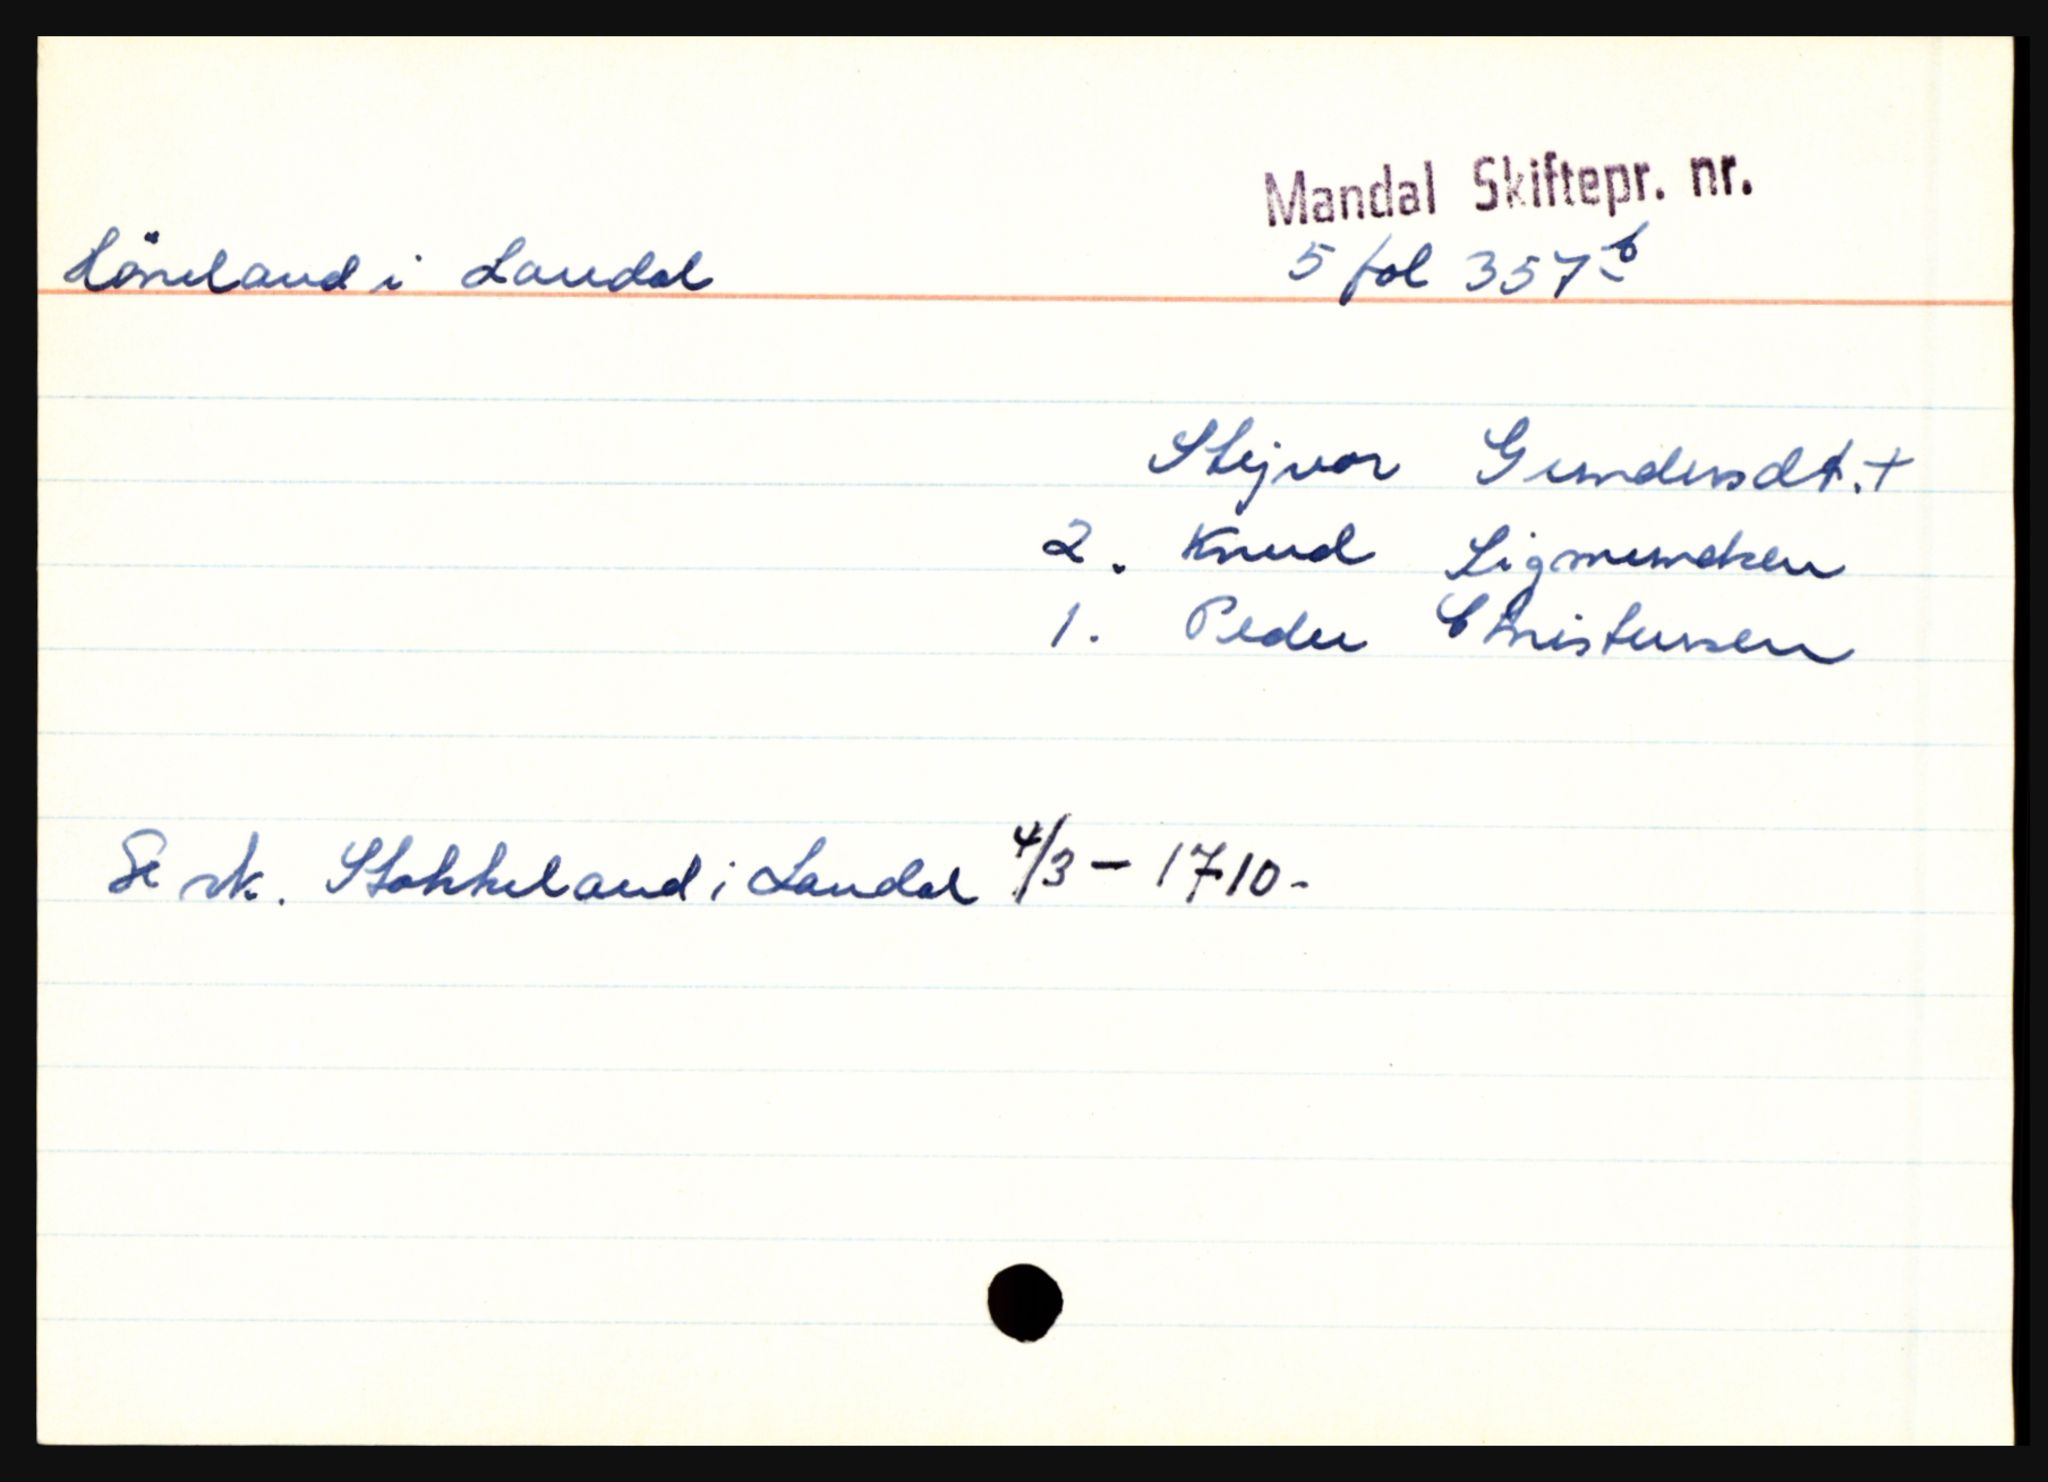 Mandal Skiftepr. nr.
Höneland i Laudal 5 fol 357 b
Stejvor Gundersdt. +
2. Knud Sigmundsen
1. Peder Christensen
Se sk. Stokkeland i Laudal 4/3 - 1710.